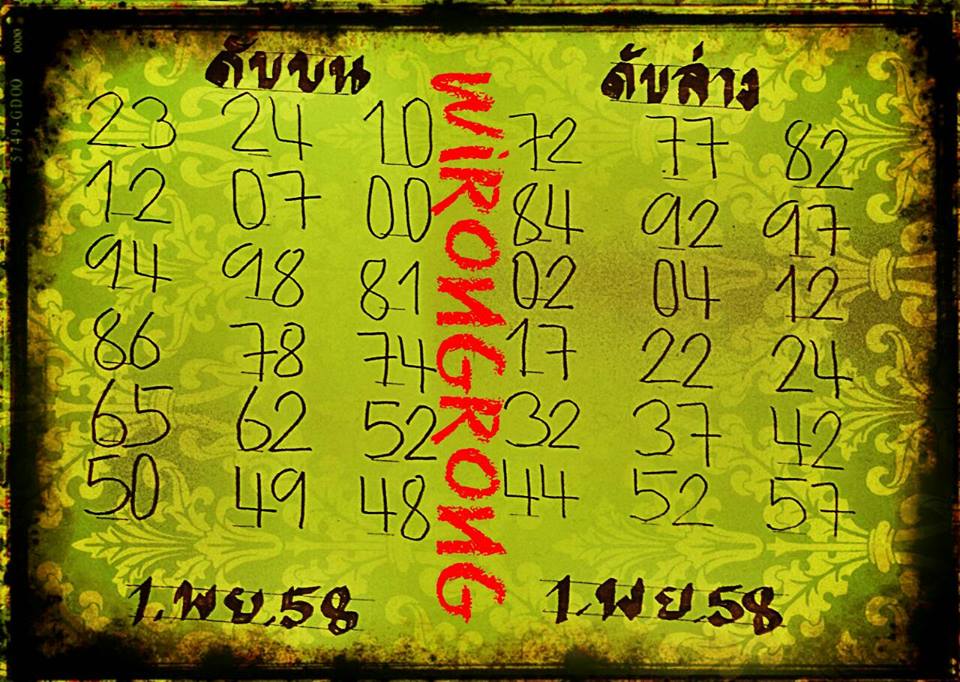 ดับบน
23 24 10
12 07 00
94 98 81
86 78 74
65 62 52
50 49 48
1.พย.58
WiRONGRONG
ดับล่าง
72 77 82
84 92 97
02 04 12
17 22 24
32 37 42
44 52 57
1.พย.58
5749-GD00
0000